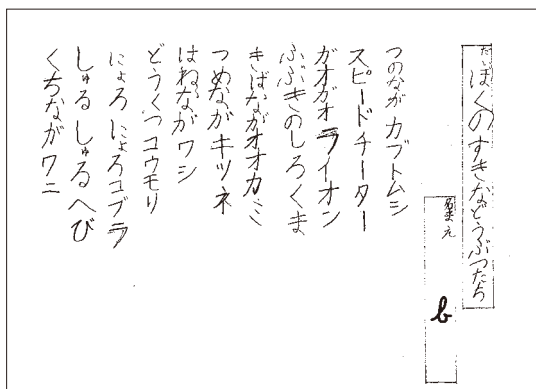 だい ぼくのすきなどうぶつたち
名まえ b
つのながカブトムシ
スピードチーター
ガオガオライオン
ふぶきのしろくま
きばながオオカミ
つめながキツネ
はねながワシ
どうくつコウモリ
にょろにょろコブラ
しゅるしゅるへび
くちながワニ